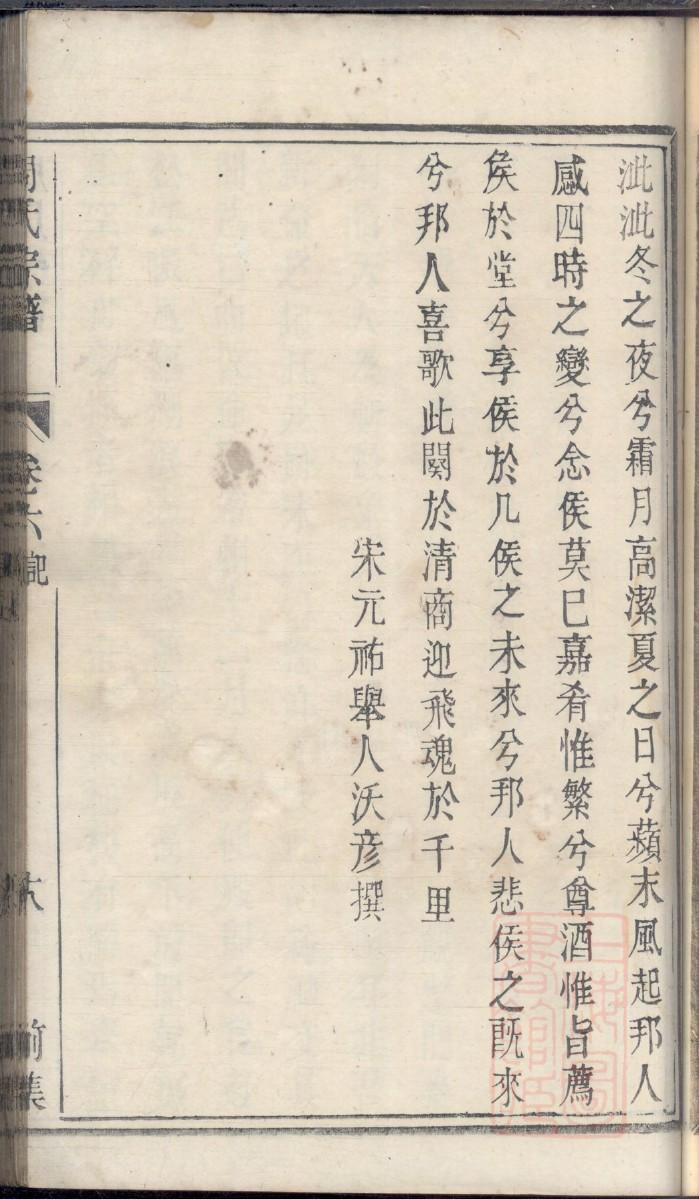 泚泚冬之夜兮霜月高潔夏之日兮蘋末風起邦人
感四時之變兮念侯莫巳嘉肴惟繁兮尊酒惟旨薦
侯於堂兮享侯於几侯之未來兮邦人悲侯之既來
兮邦人喜歌此闋於清商迎飛魂於千里
宋元祐舉人沃彥撰
氏宗譜
卷六記
前集